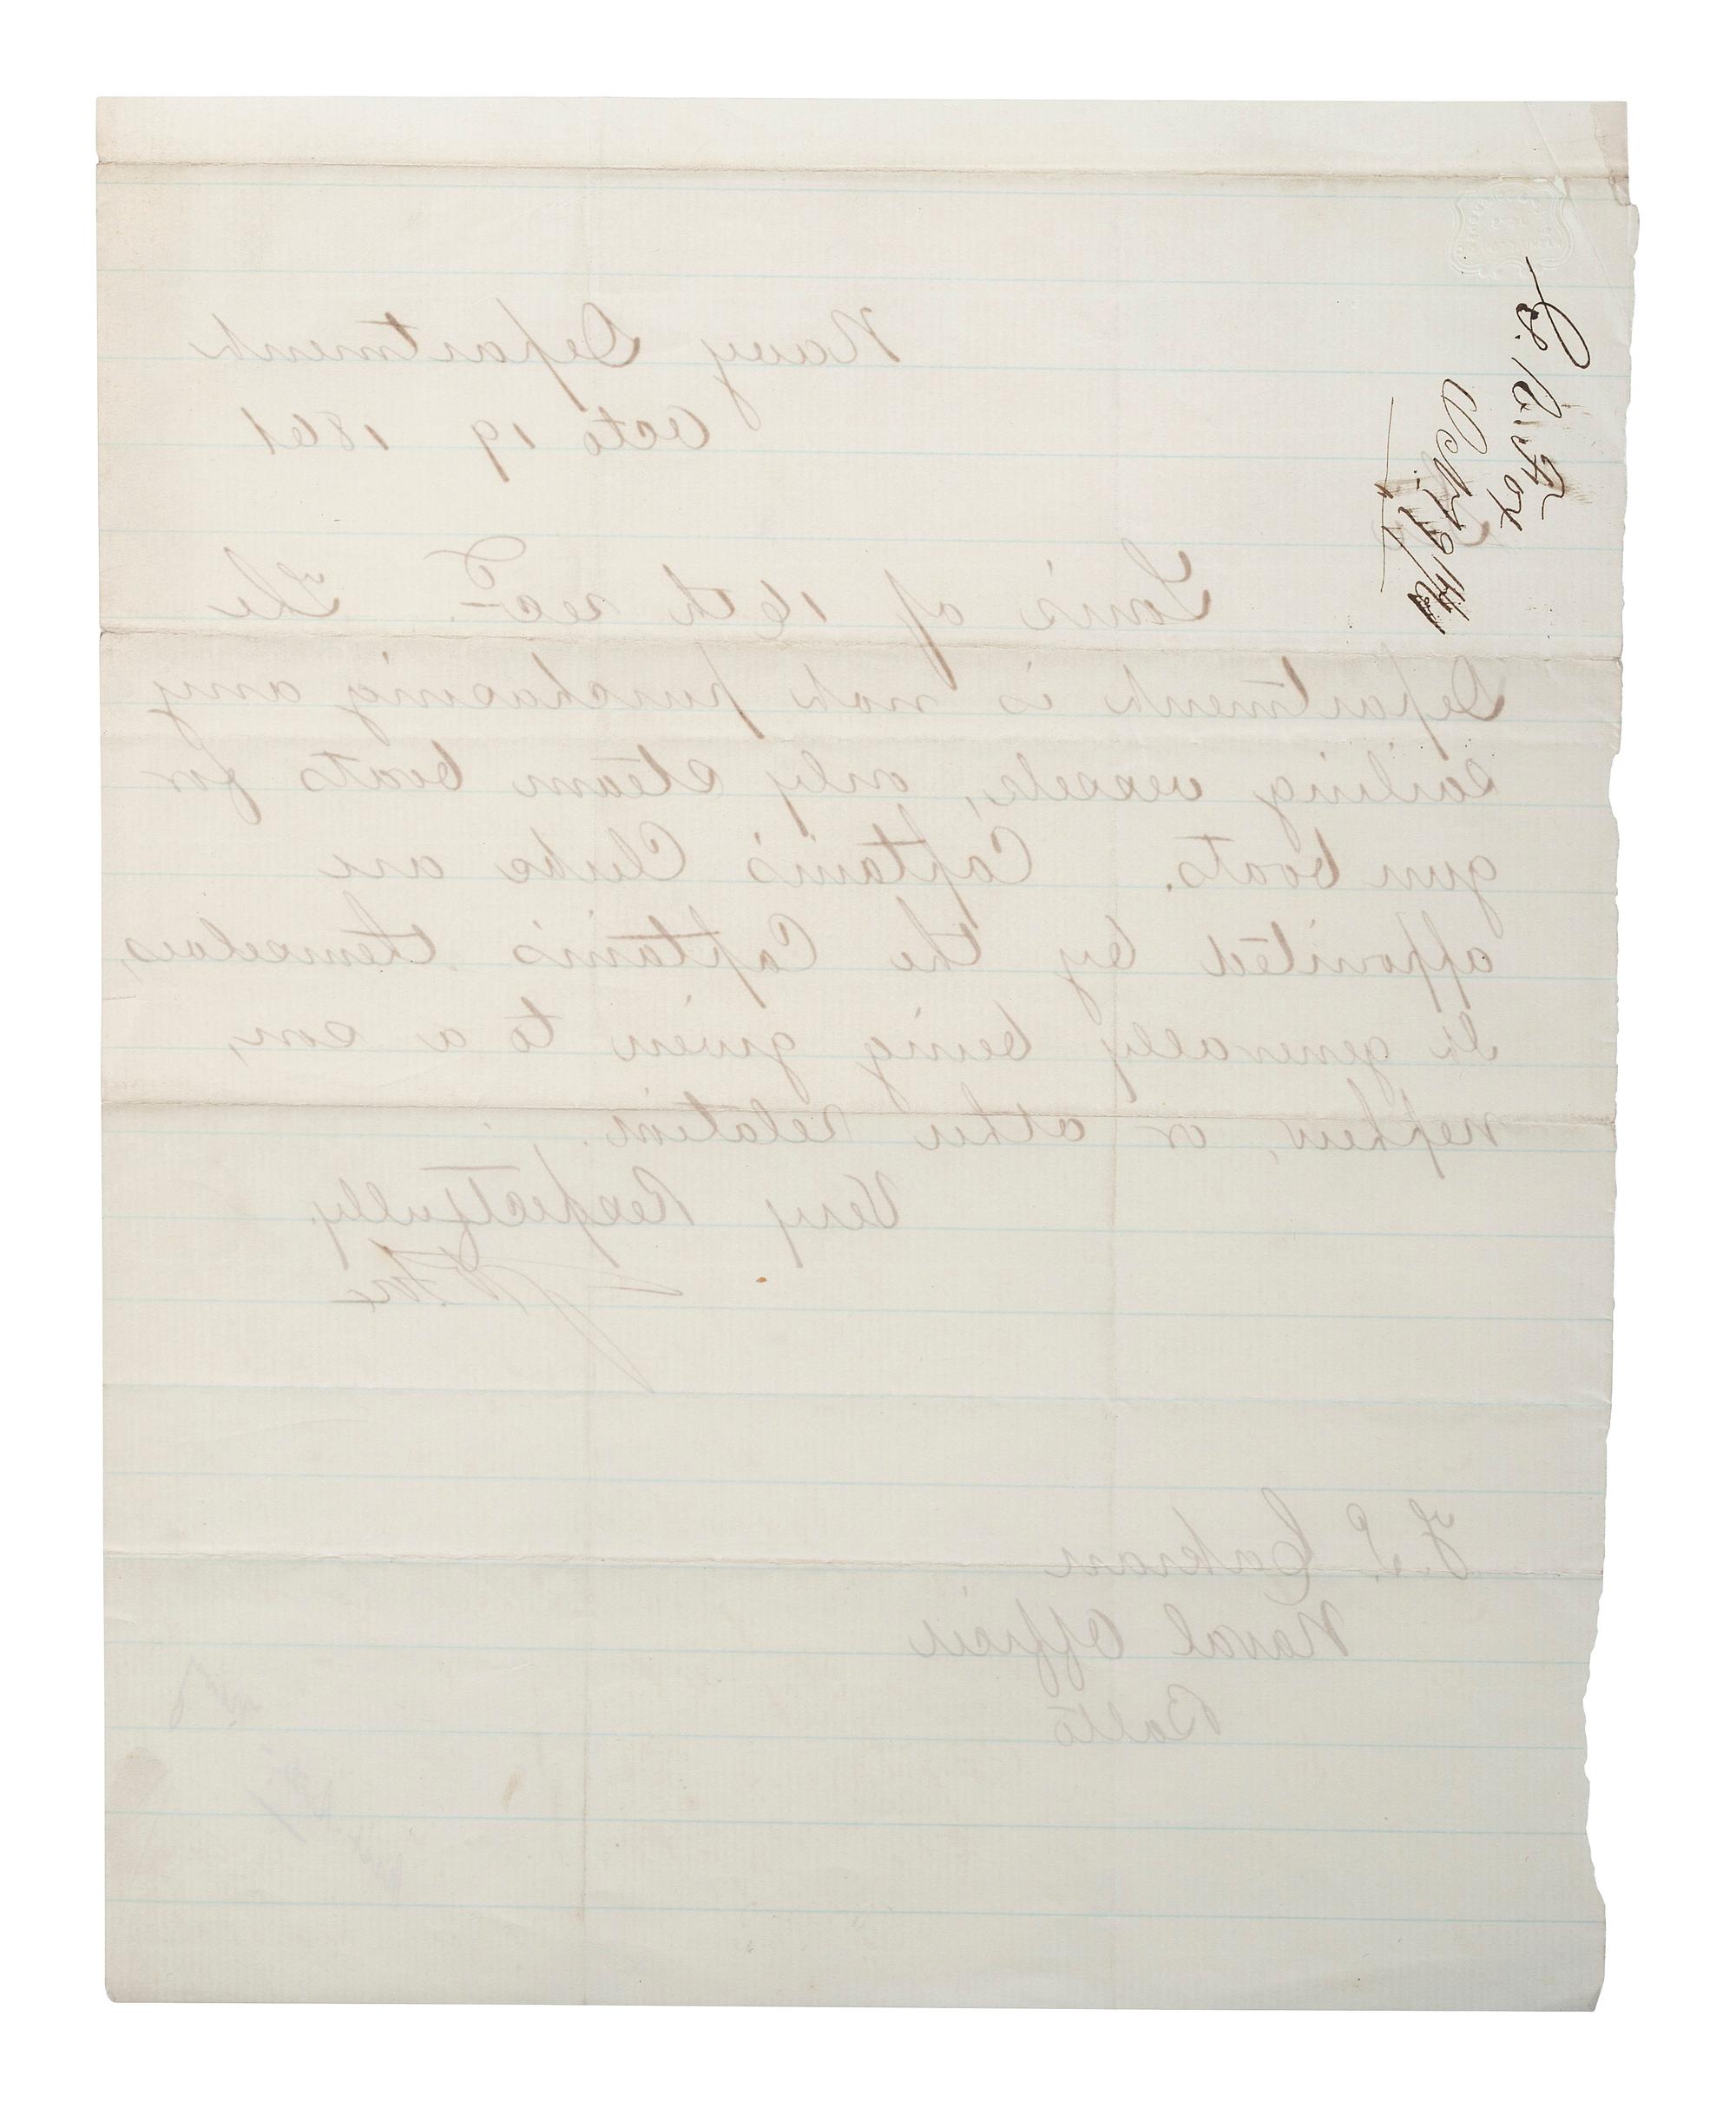 G. V. Fox
Oct. 19/61
Navy Department
Octo 19 1861
Sir
Yours of 16th recd. The
Department is not purchasing any
sailing vessels, only steam boats for
gun boats. Captain's Clerks are
appointed by the Captains themselves,
It generally being given to a son,
nephew, or other relation.
Very Respectfully
G V Fox
F. S. Corkran
Naval Officer
Balto